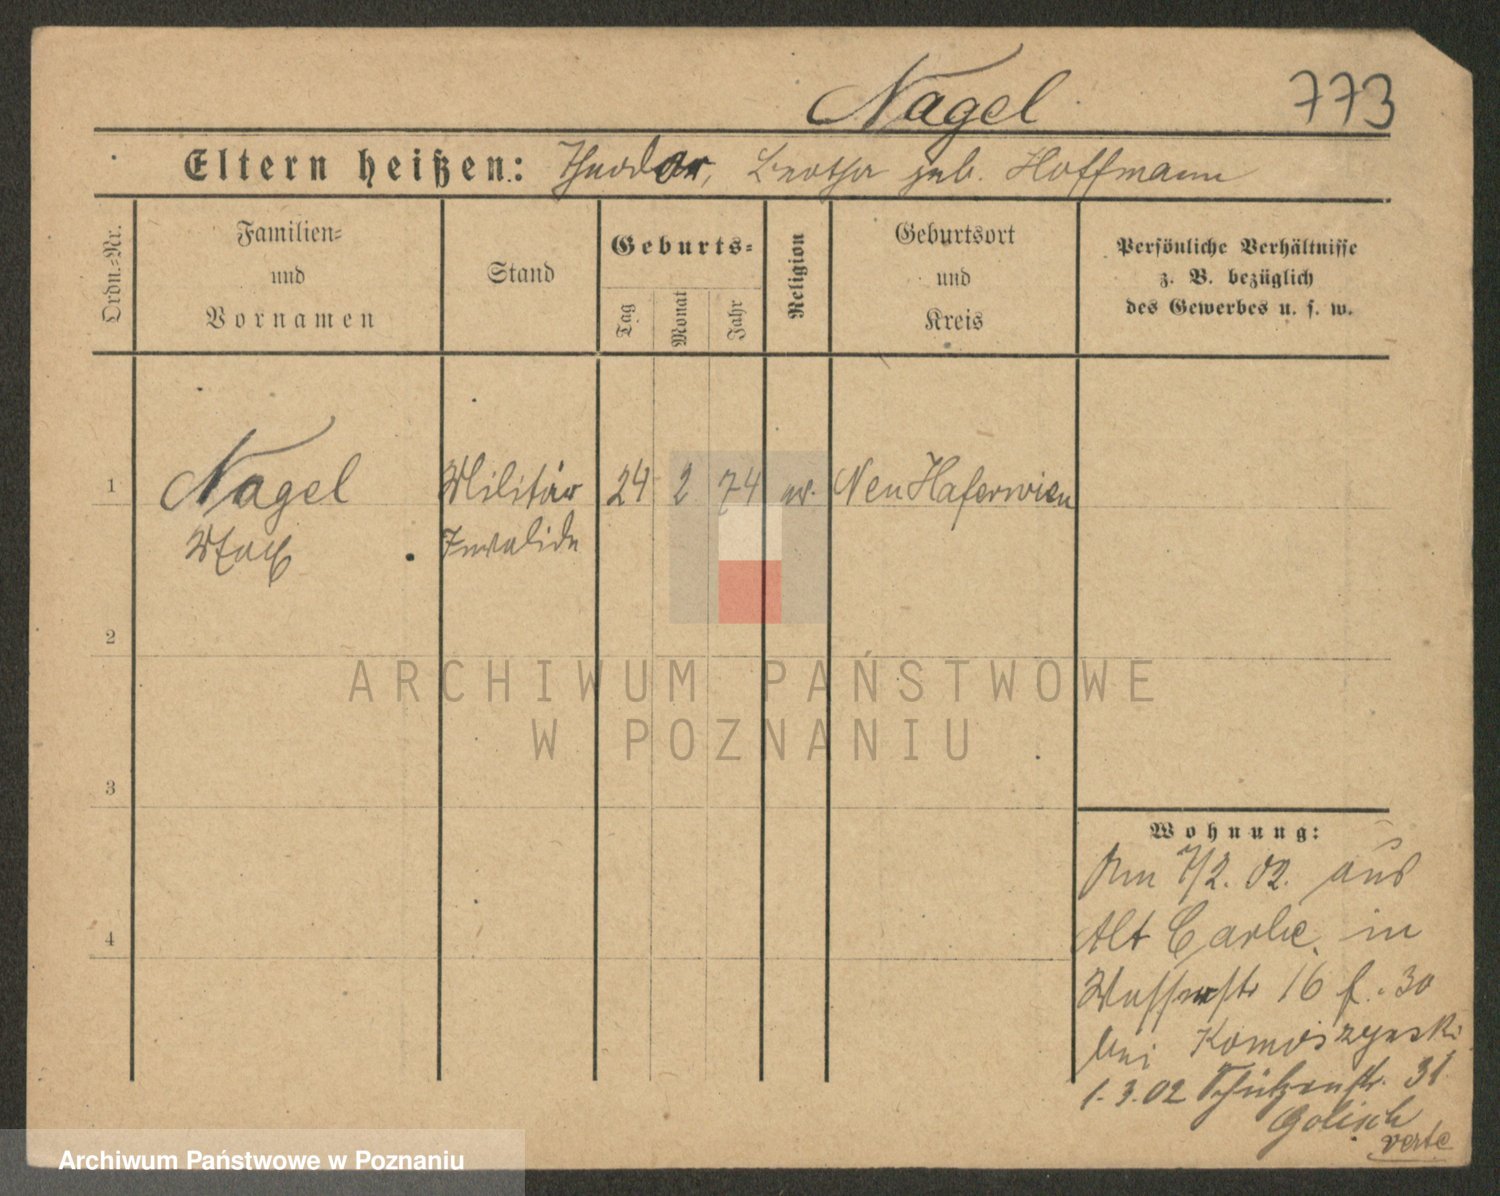 Nagel 773
Eltern heißen: Theodor, Bertha geb. Hoffmann
Ordn.-Nr.
Familien-
und
Vornamen
Stand
Geburts-
Tag
Monat
Jahr
Religion
Geburtsort
und
Kreis
Persönliche Verhältnisse
z. B. bezüglich
des Gewerbes u. s. w.
1 Nagel Militär 24 2 74 Neu Haferwiese
Max Invalide
2
3
4
Wohnung:
Am 7/2. 02. aus
Alt in
Wasserstr 16 f. 30
bei
1.3.02 Schützenstr. 31
Golisch
verte
ARCHIWUM PAŃSTWOWE
W POZNANIU
Archiwum Państwowe w Poznaniu